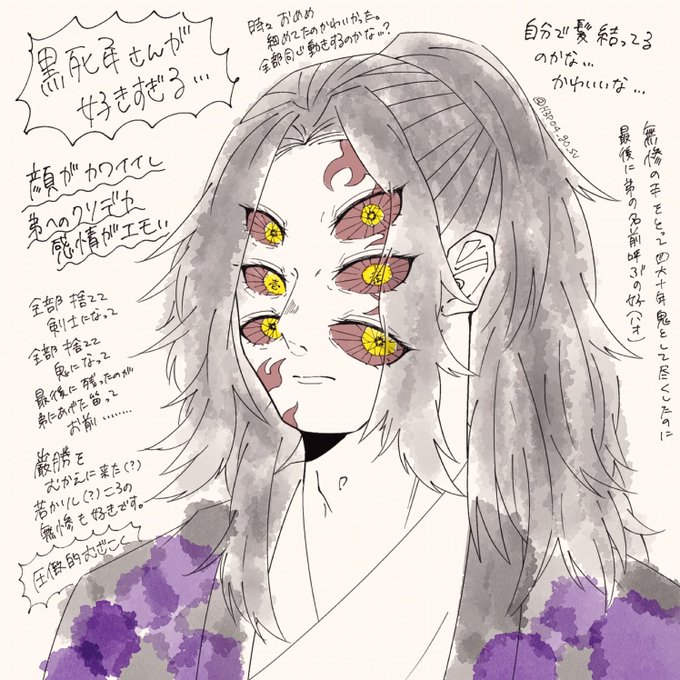 黒死牟さんが
好きすぎる…
時々おめめ
細めてたのかわいかった。
全部同じ動きするのかな?
自分で髪結ってる
のかな…
かわいいな…
@H3P04_90.SU
無惨の手をとって四六十年鬼として尽くしたのに
最後に弟の名前呼ぶの好(ハオ)
顔がカワイイし
弟へのクソデカ
感情がエモい
全部捨てて
剣士になって
全部捨てて
鬼になって
最後に残ったのが
弟にあげた笛って
お前………
巌勝を
むかえに来た(?)
若かりし(?)ころの
無惨も好きです。
圧倒的むざこく